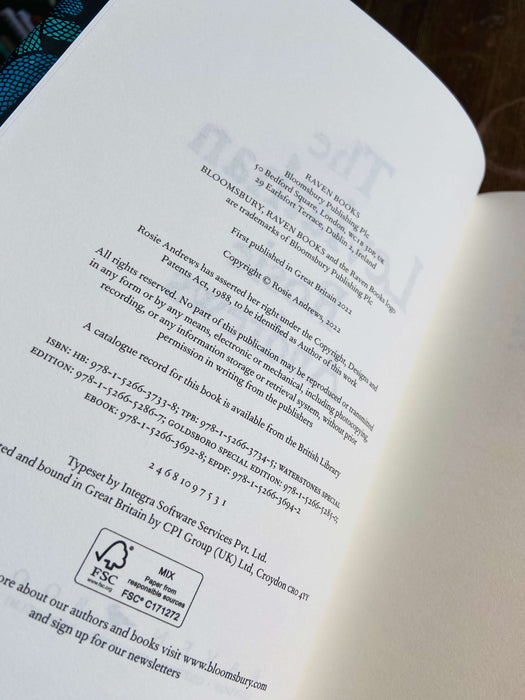 RAVEN BOOKS
Bloomsbury Publishing Plc
50 Bedford Square, London, WC1B 3DP, UK
29 Earlsfort Terrace, Dublin 2, Ireland
BLOOMSBURY, RAVEN BOOKS and the Raven Books logo
are trademarks of Bloomsbury Publishing Plc
First published in Great Britain 2022
Copyright © Rosie Andrews, 2022
Rosie Andrews has asserted her right under the Copyright, Designs and
Patents Act, 1988, to be identified as Author of this work
All rights reserved. No part of this publication may be reproduced or transmitted
in any form or by any means, electronic or mechanical, including photocopying,
recording, or any information storage or retrieval system, without prior
permission in writing from the publishers
A catalogue record for this book is available from the British Library
ISBN: HB: 978-1-5266-3733-8; TPB: 978-1-5266-3734-5; WATERSTONES SPECIAL
EDITION: 978-1-5266-5286-7; GOLDSBORO SPECIAL EDITION: 978-1-5266-5285-0;
EBOOK: 978-1-5266-3692-8; EPDF: 978-1-5266-3694-2
2 4 6 8 10 9 7 5 3 1
Typeset by Integra Software Services Pvt. Ltd.
ted and bound in Great Britain by CPI Group (UK) Ltd, Croydon CR0 4YY
FSC
www.fsc.org
MIX
Paper from
responsible sources
FSC® C171272
ore about our authors and books visit www.bloomsbury.com
and sign up for our newsletters